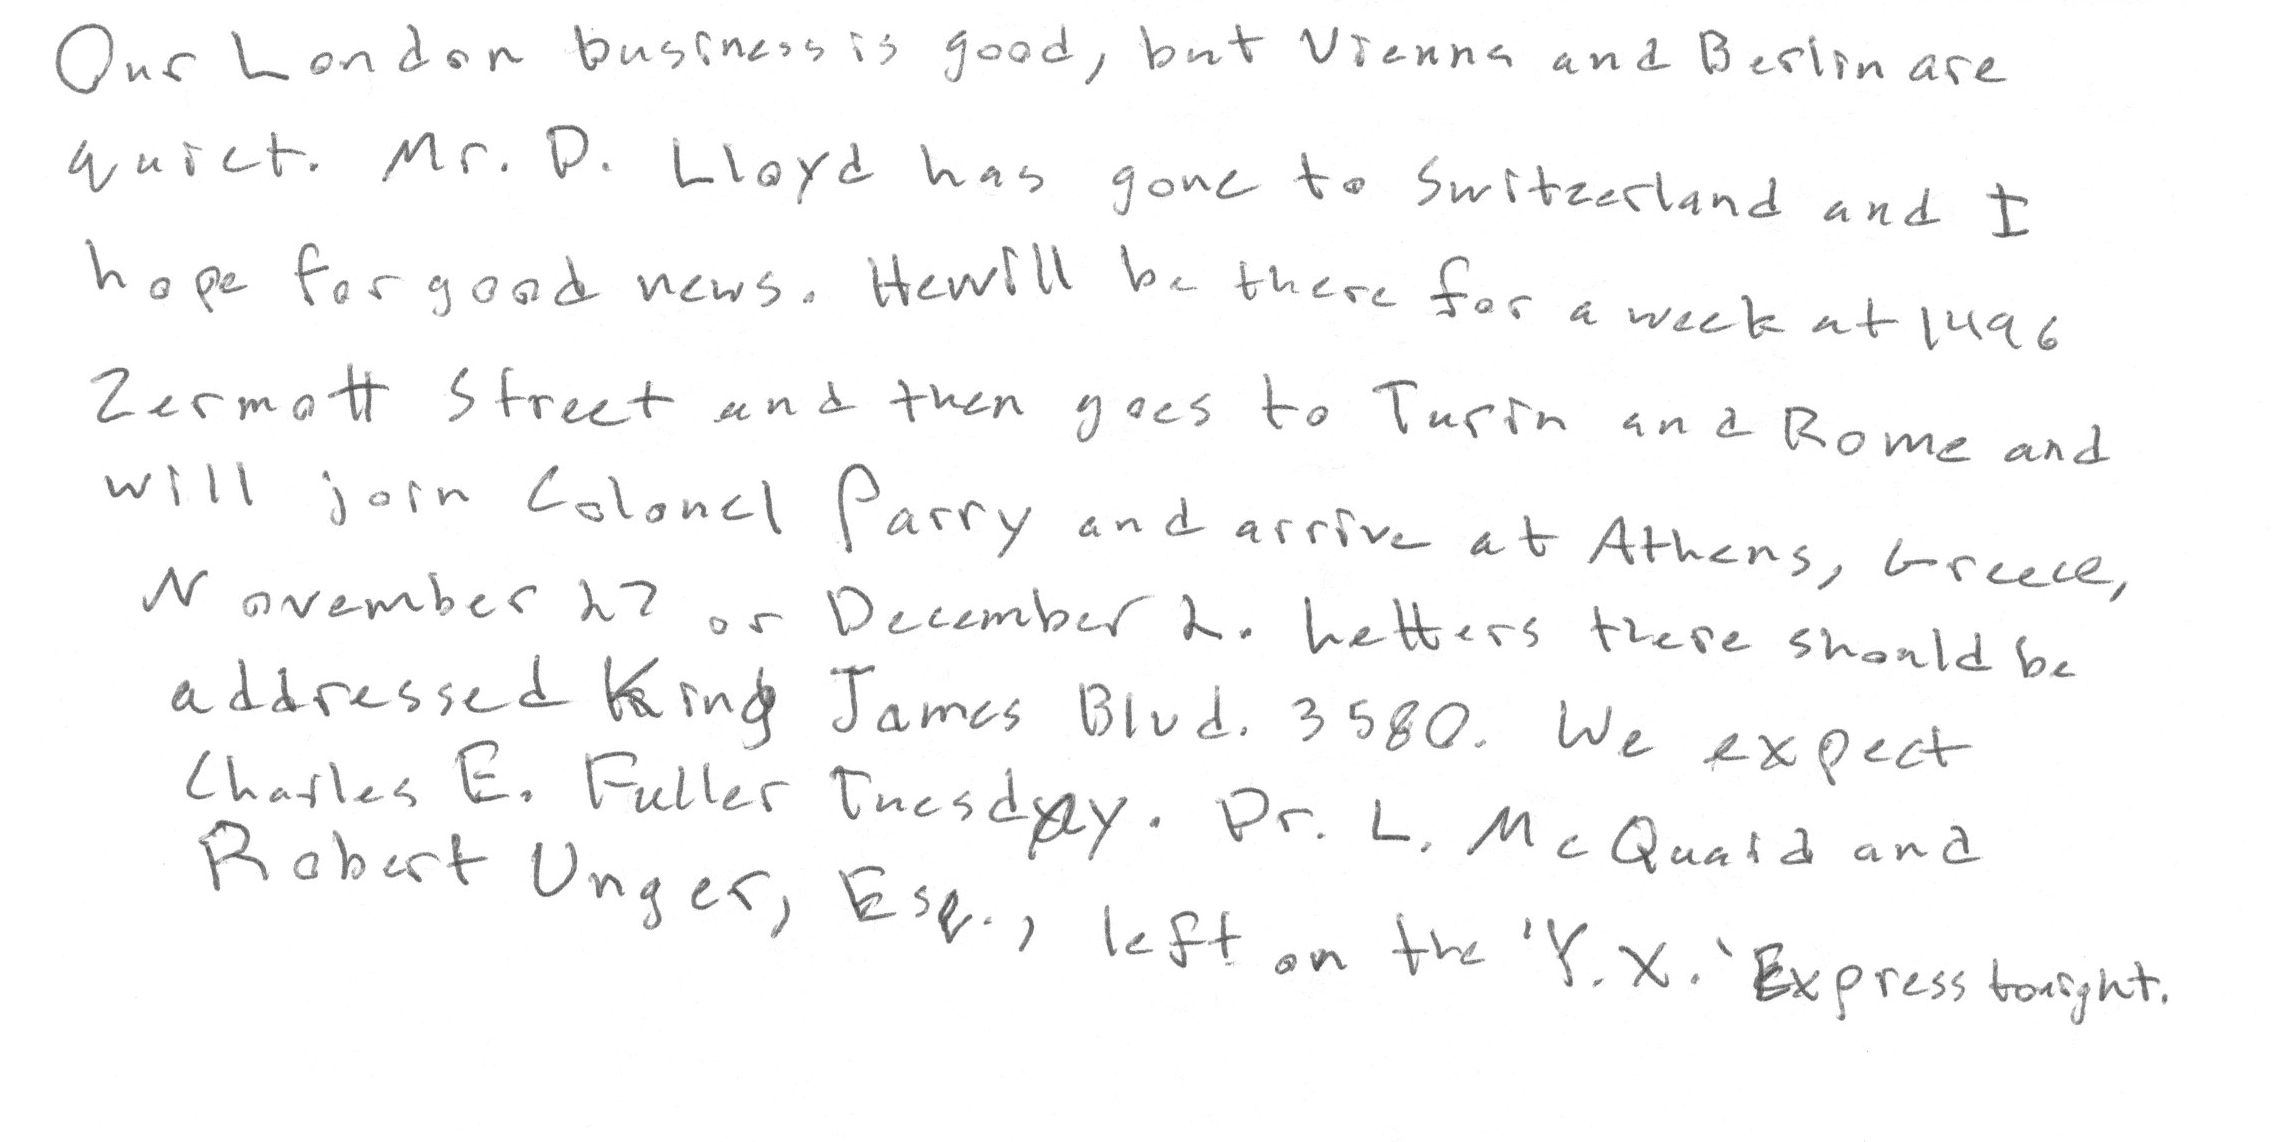 Our London business is good, but Vienna and Berlin are
quiet. Mr. D. Lloyd has gone to Switzerland and I
hope for good news. He will be there for a week at 1496
Zermott Street and then goes to Turin and Rome and
will join Colonel Parry and arrive at Athens, Greece,
November 27 or December 2. Letters there should be
addressed King James Blvd. 3580. We expect
Charles E. Fuller Tuesday. Dr. L. McQuaid and
Robert Unger, Esq., left on the 'Y.X.' Express tonight.